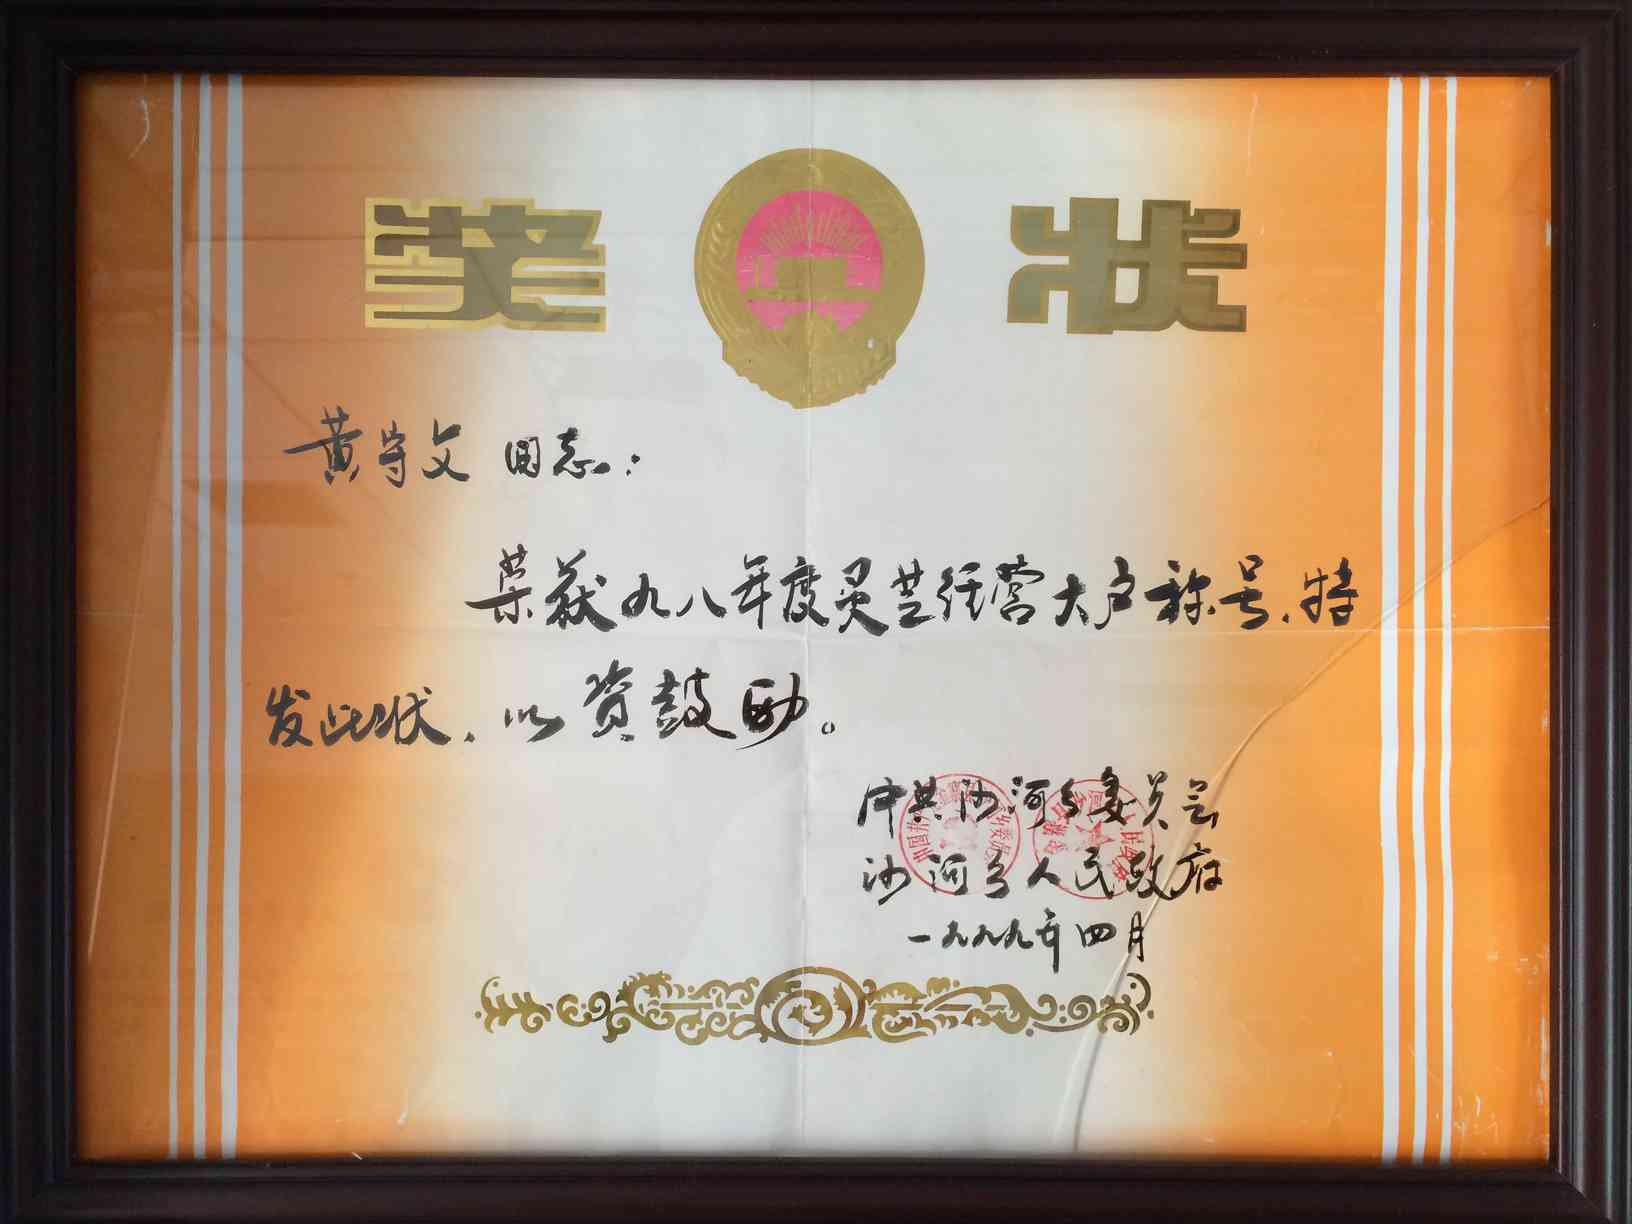 奖状
黄守文 同志：
荣获九八年度灵芝经营大户称号，特
发此状，以资鼓励。
中共沙河乡委员会
沙河乡人民政府
一九九九年四月